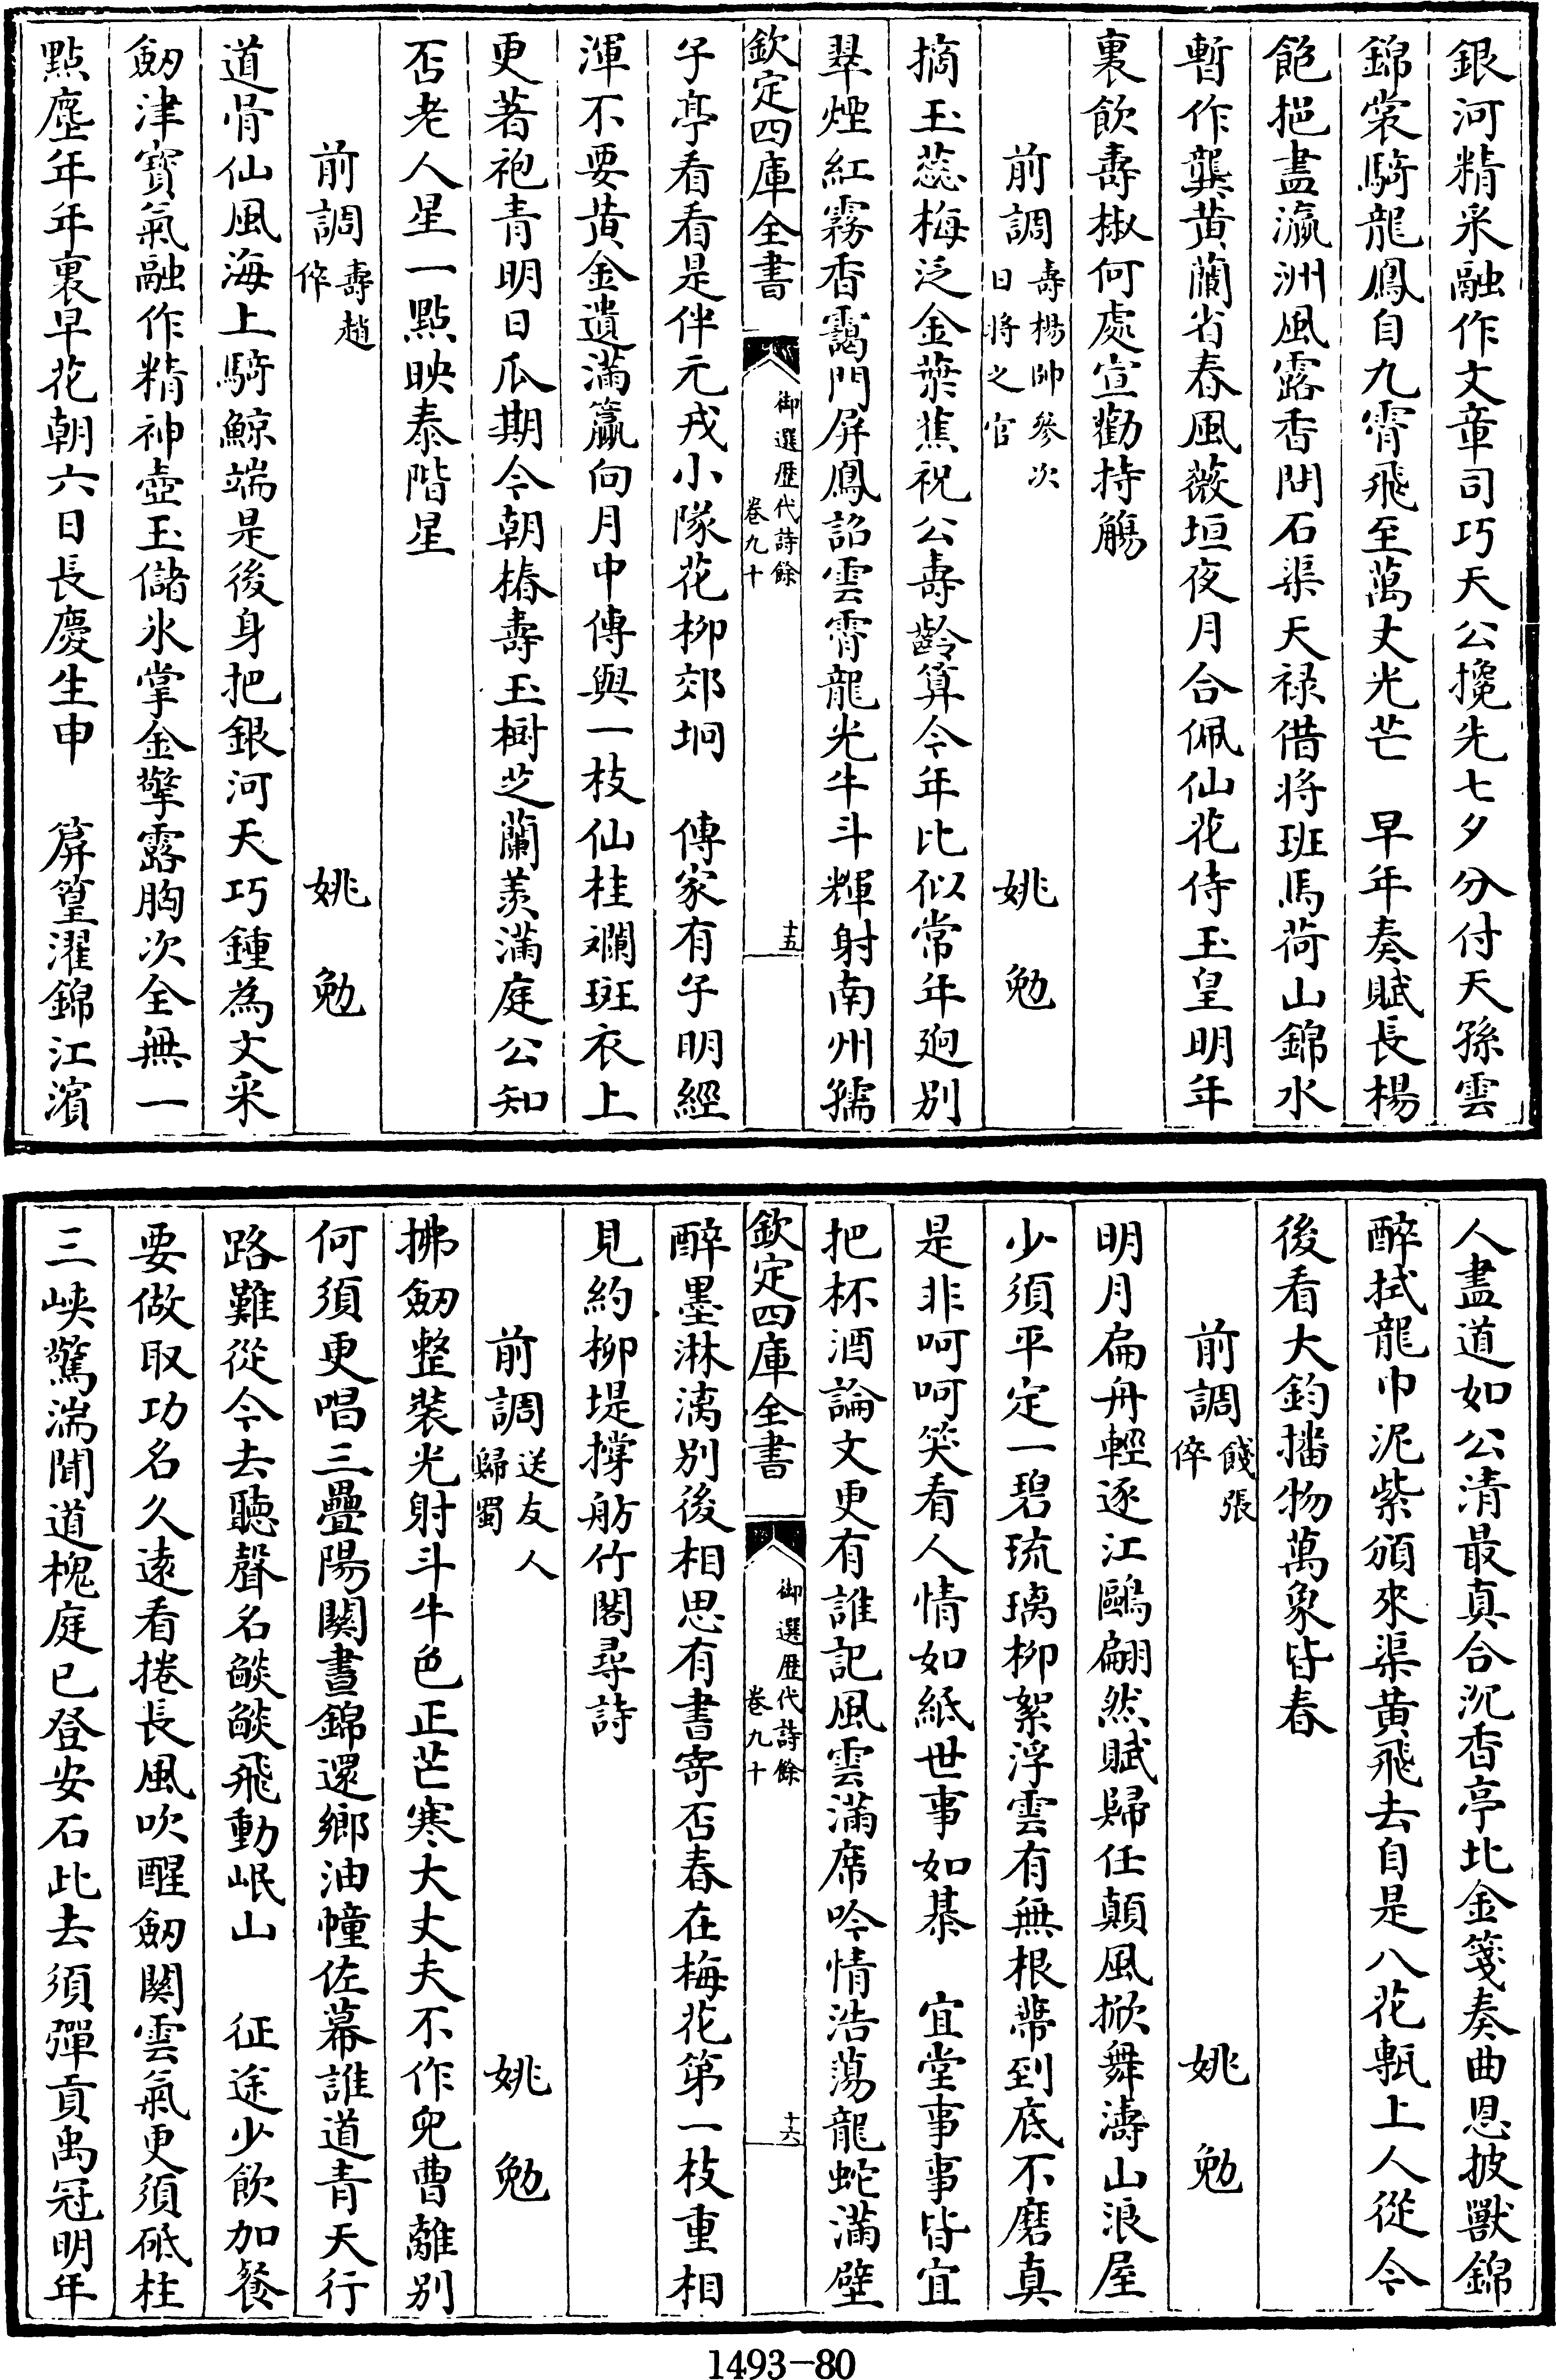 銀河精采融作文章司巧天公攙先七夕分付天孫雲
錦裳騎龍鳳自九霄飛至萬丈光芒　早年奏賦長楊
飽挹盡瀛洲風露香問石渠天祿借將班馬荷山錦水
暫作龔黃蘭省春風薇垣夜月合佩仙花侍玉皇明年
裏飲壽椒何處宣勸持觴
前調 壽楊帥參次日將之官 姚勉
摘玉蕊梅泛金葉蕉祝公壽齡算今年比似常年逈别
翠煙紅霧香靄門屏鳳詔雲霄龍光牛斗輝射南州孺
欽定四庫全書 御選歷代詩餘 卷九十 十五
子亭看看是伴元戎小隊花柳郊坰　傳家有子明經
渾不要黃金遺滿籯向月中傳與一枝仙桂斕斑衣上
更著袍青明日瓜期今朝椿壽玉樹芝蘭羨滿庭公知
否老人星一點映泰階星
前調 壽趙倅 姚勉
道骨仙風海上騎鯨端是後身把銀河天巧鍾為文采
劒津寶氣融作精神壺玉儲氷掌金擎露胸次全無一
點塵年年裏早花朝六日長慶生申　箳篁濯錦江濱
人盡道如公清最真合沉香亭北金箋奏曲恩披獸錦
醉拭龍巾泥紫頒來渠黃飛去自是八花甎上人從今
後看大鈞播物萬象皆春
前調 餞張倅 姚勉
明月扁舟輕逐江鷗翩然賦歸任顛風掀舞濤山浪屋
少須平定一碧琉璃柳絮浮雲有無根蔕到底不磨真
是非呵呵笑看人情如紙世事如棊　宜堂事事皆宜
把杯酒論文更有誰記風雲滿席吟情浩蕩龍蛇滿壁
欽定四庫全書 御選歷代詩餘 卷九十 十六
醉墨淋漓别後相思有書寄否春在梅花第一枝重相
見約柳堤撐舫竹閣尋詩
前調 送友人歸蜀 姚勉
拂劒整裝光射斗牛色正芒寒大丈夫不作兒曹離别
何須更唱三疊陽關晝錦還鄉油幢佐幕誰道青天行
路難從今去聽聲名燄燄飛動岷山　征途少飲加餐
要做取功名久遠看捲長風吹醒劒關雲氣更須砥柱
三峽驚湍聞道槐庭已登安石此去須彈貢禹冠明年
1493-80